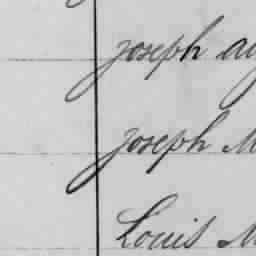 Joseph Au
Joseph M
Louis M